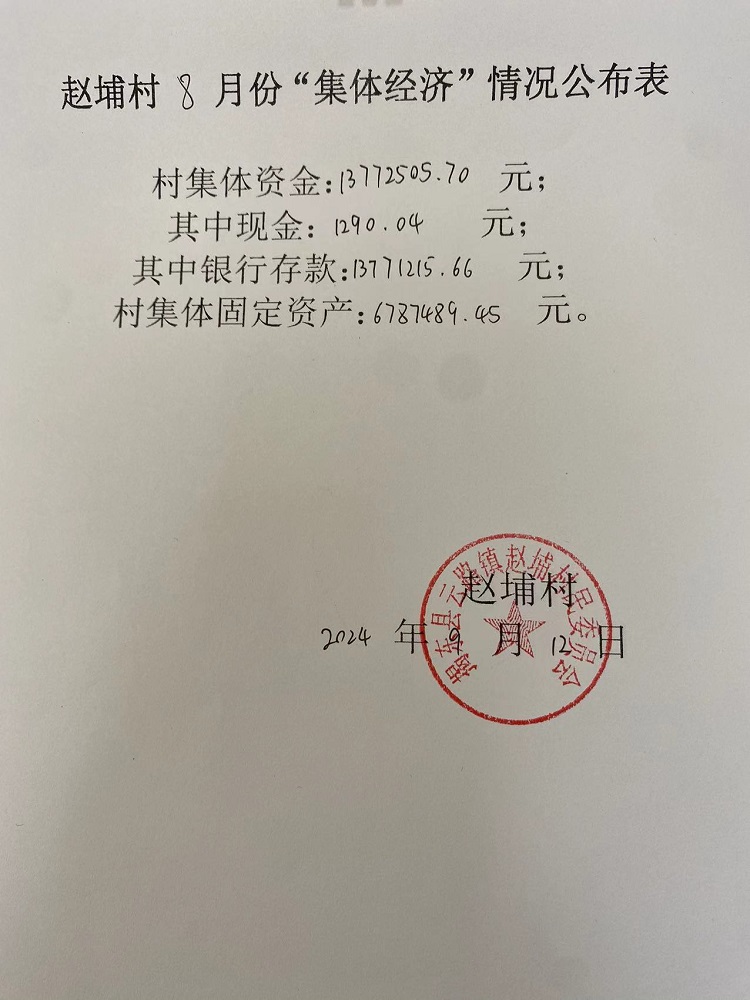 赵埔村 8 月份“集体经济”情况公布表
村集体资金:13772505.70 元;
其中现金: 1290.04 元;
其中银行存款:13771215.66 元;
村集体固定资产:6787489.45 元。
揭东县云路镇赵埔村民委员会
赵埔村
2024 年 9 月 12 日